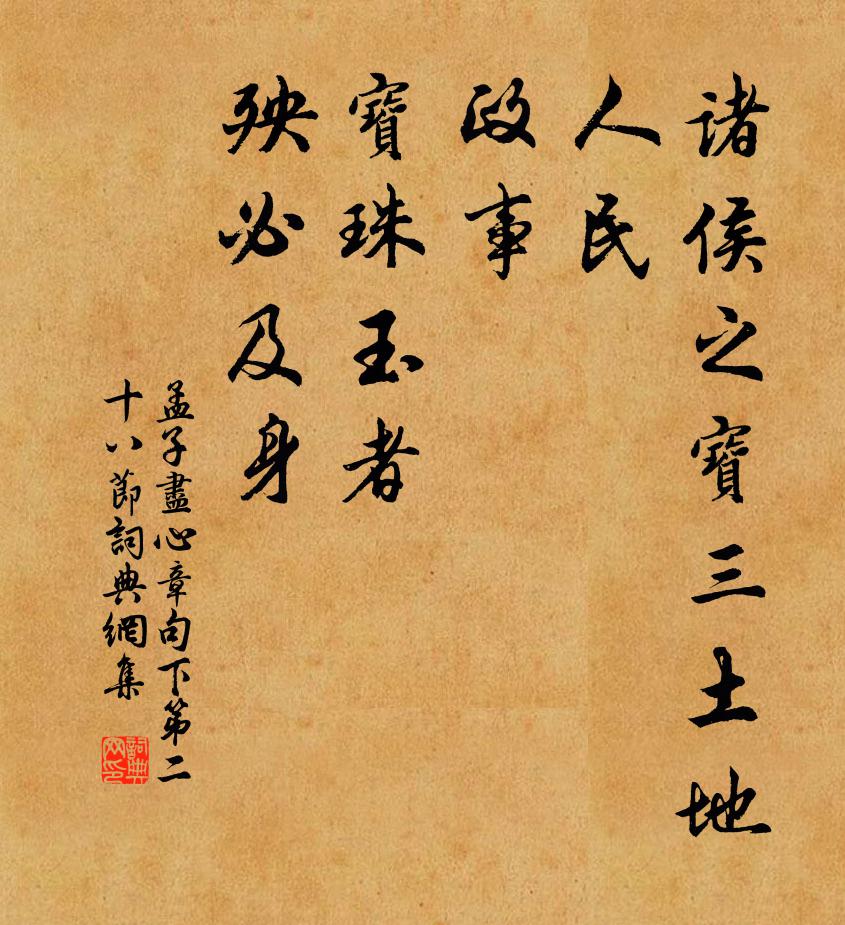 諸侯之寶三土地
人民
政事
寶珠玉者
殃必及身
孟子盡心章句下第二
十八節詞典網集
詞典
网印